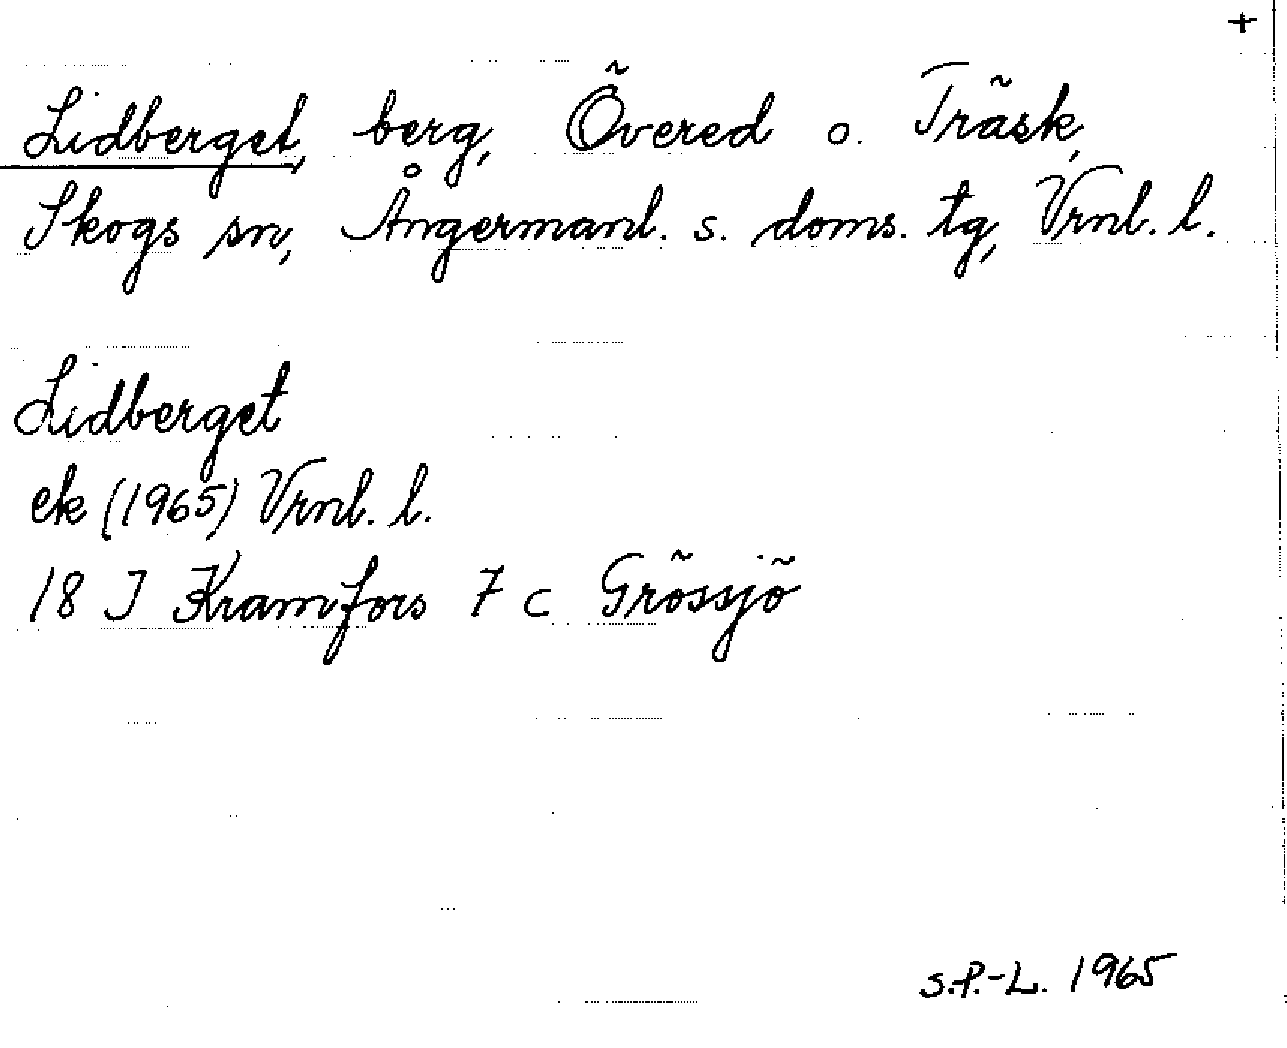 +
Lidberget, berg, Övered o. Träsk,
Skogs sn, Ångermanl. s. doms. tg, Vrnl. l.
Lidberget
ek (1965) Vrnl. l.
18 I Kramfors 7 c Grössjö
S.P.-L. 1965